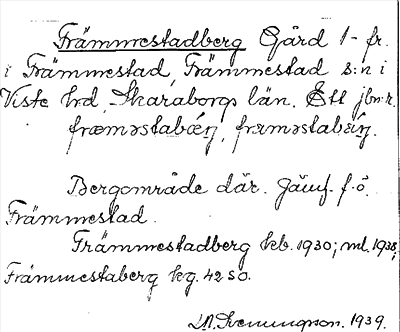 Främmestadberg Gård 1- fr.
i Främmestad, Främmestad s:n i
Viste hrd, Skaraborgs län. Ett jbn:r.
Bergområde där. Jämf. f. ö.
Främmestad.
Främmestadberg kb. 1930; ml. 1938;
Främmestaberg kg. 42 SO.
Svenningson. 1939.